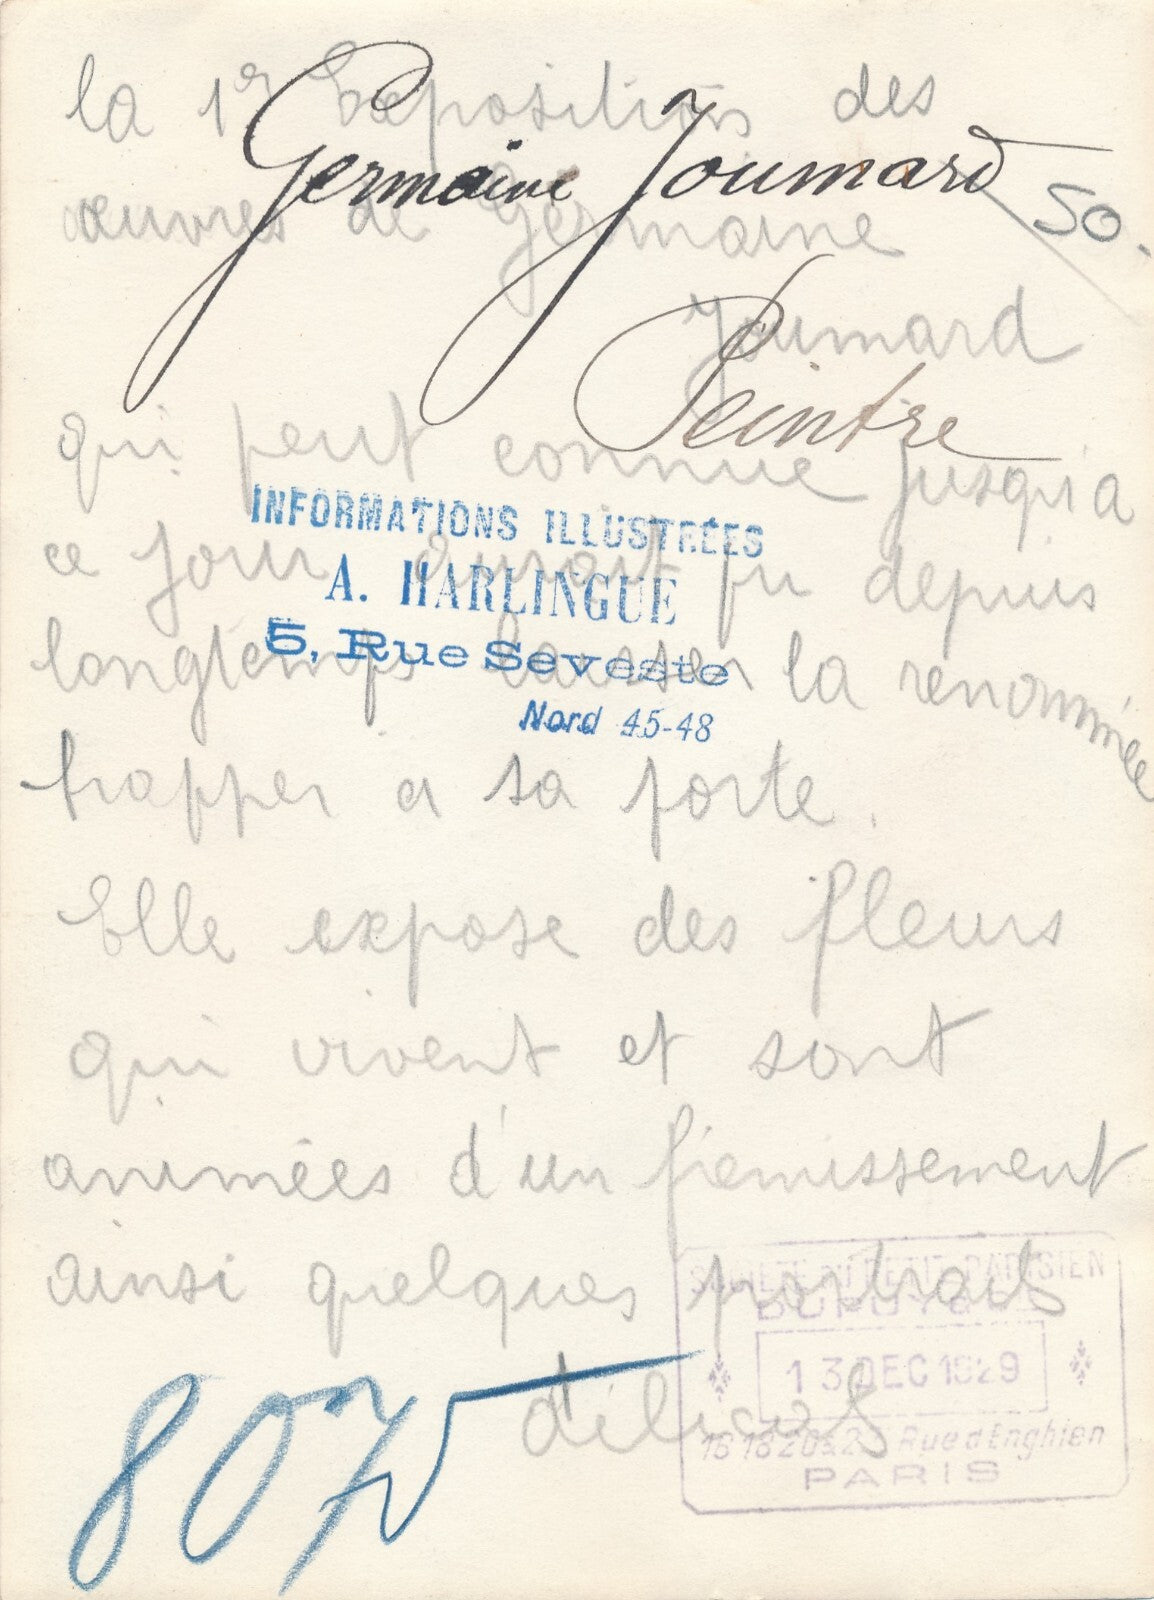 la 1re Exposition des
Germaine Joumard
œuvres de Germaine
50.
Joumard
Peintre
qui peut connue jusqu'a
INFORMATIONS ILLUSTRÉES
ce jour aurait pu depuis
A. HARLINGUE
5, Rue Seveste
longtemps laisser la renommée
Nord 45-48
frapper a sa porte.
Elle expose des fleurs
qui vivent et sont
animées d'un fremissement
ainsi quelques portraits
SOCIÉTÉ DU PETIT PARISIEN
DUPUY
13 DEC 1929
délicats
16 18 20 & 22 Rue d'Enghien
PARIS
807